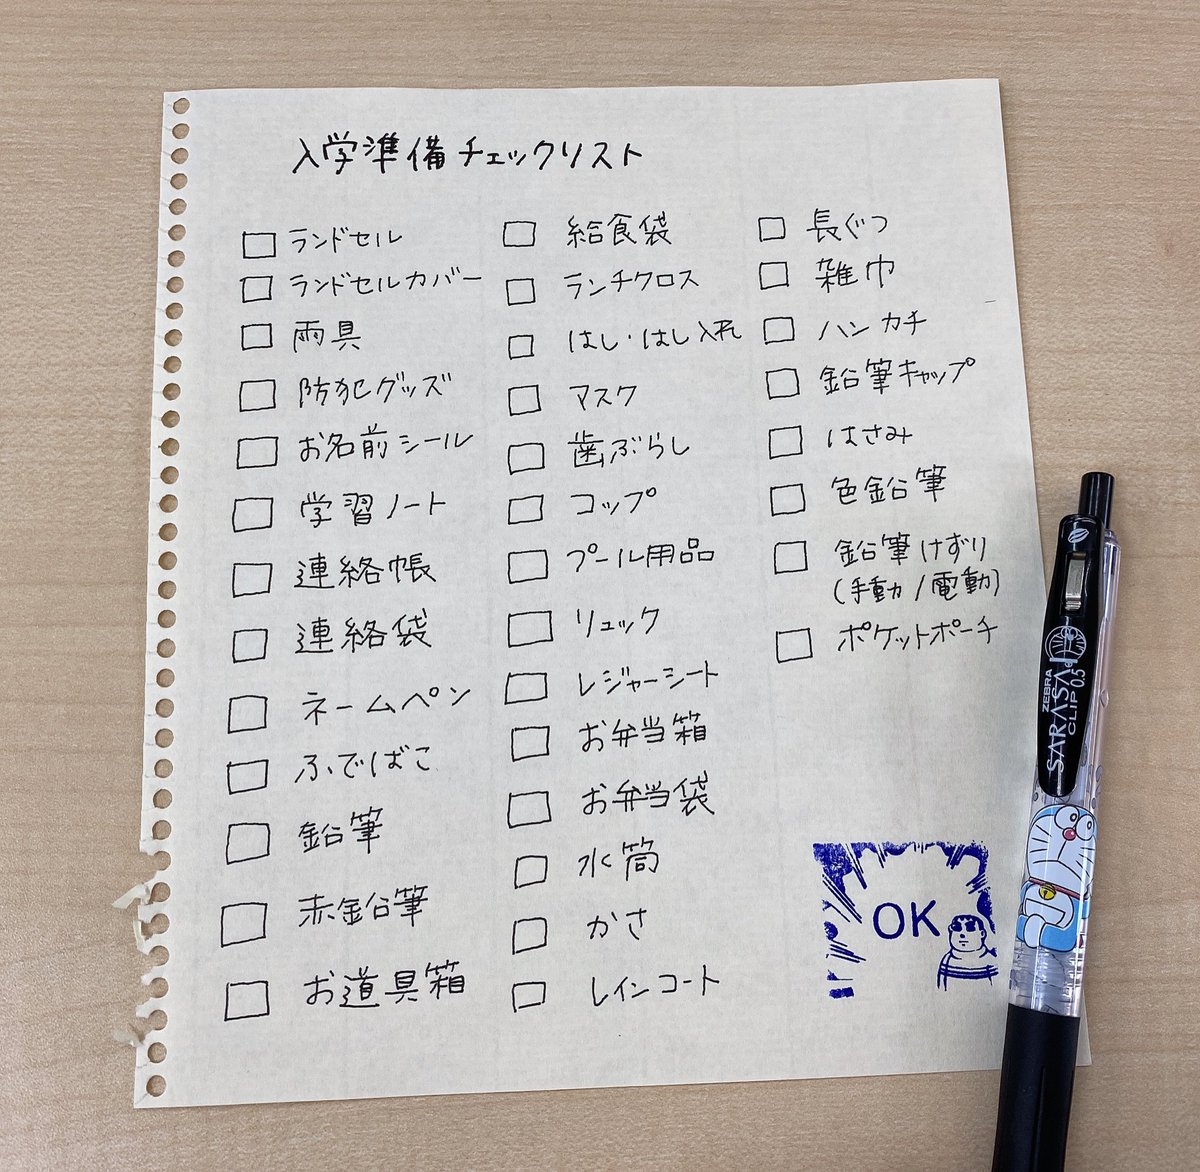 入学準備チェックリスト
ランドセル
ランドセルカバー
雨具
防犯グッズ
お名前シール
学習ノート
連絡帳
連絡袋
ネームペン
ふでばこ
鉛筆
赤鉛筆
お道具箱
給食袋
ランチクロス
はし・はし入れ
マスク
歯ぶらし
コップ
プール用品
リュック
レジャーシート
お弁当箱
お弁当袋
水筒
かさ
レインコート
長ぐつ
雑巾
ハンカチ
鉛筆キャップ
はさみ
色鉛筆
鉛筆けずり
(手動/電動)
ポケットポーチ
OK
ZEBRA
SARASA
CLIP 0.5